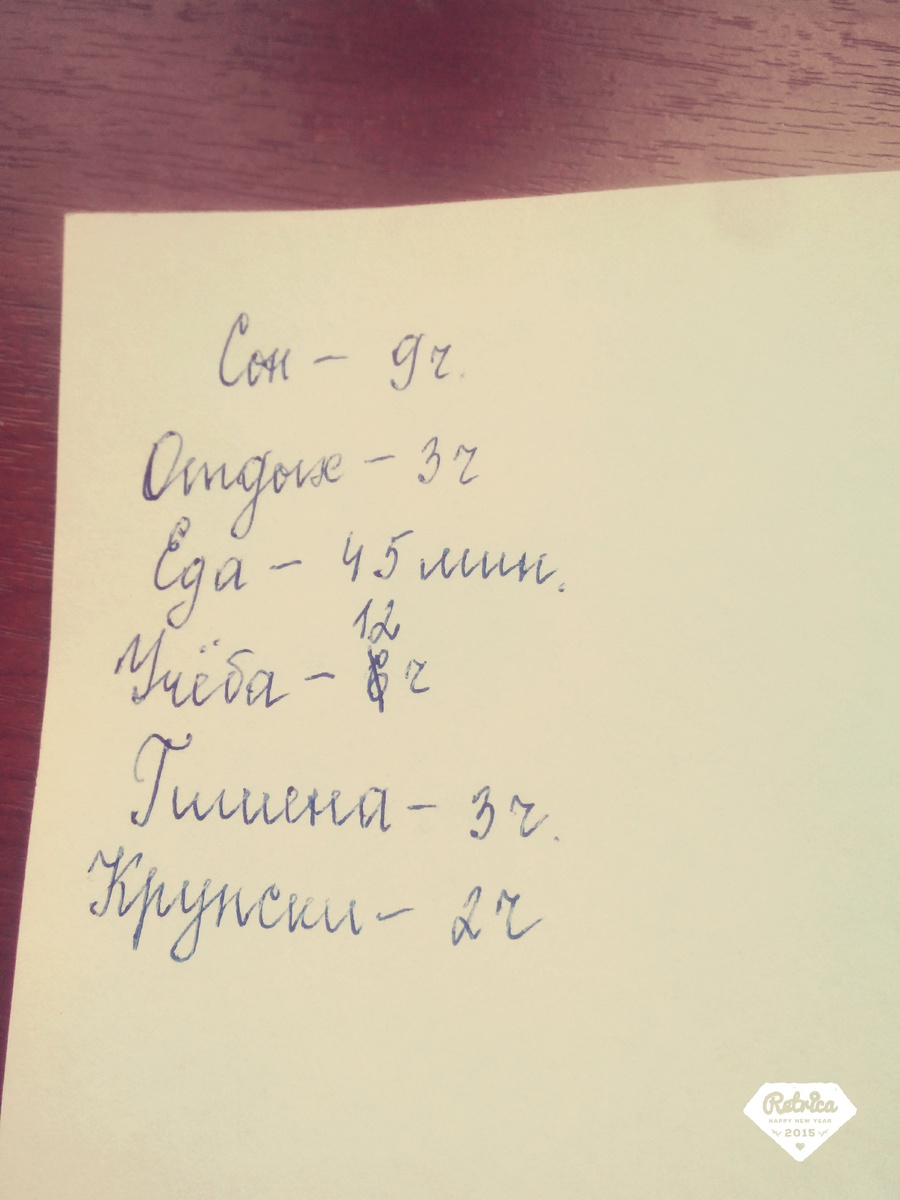 Сон – 9ч.
Отдых – 3ч
Еда – 45 мин.
12
Учёба – ч
Гигиена – 3ч.
– 2ч
Retrica
HAPPY NEW YEAR
2015